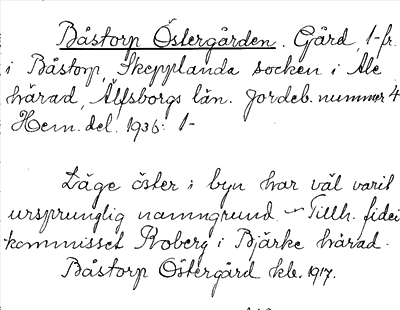 Båstorp Östergården. Gård, 1-fr.
i Båstorp, Skepplanda socken i Ale
härad, Älfsborgs län. Jordeb. nummer 4
Hem. del. 1936: 1-
Läge öster i byn har väl varit
ursprunglig namngrund. - Tillh. fidei
kommisset Koberg i Bjärke härad.
Båstorp Östergård kb. 1917.